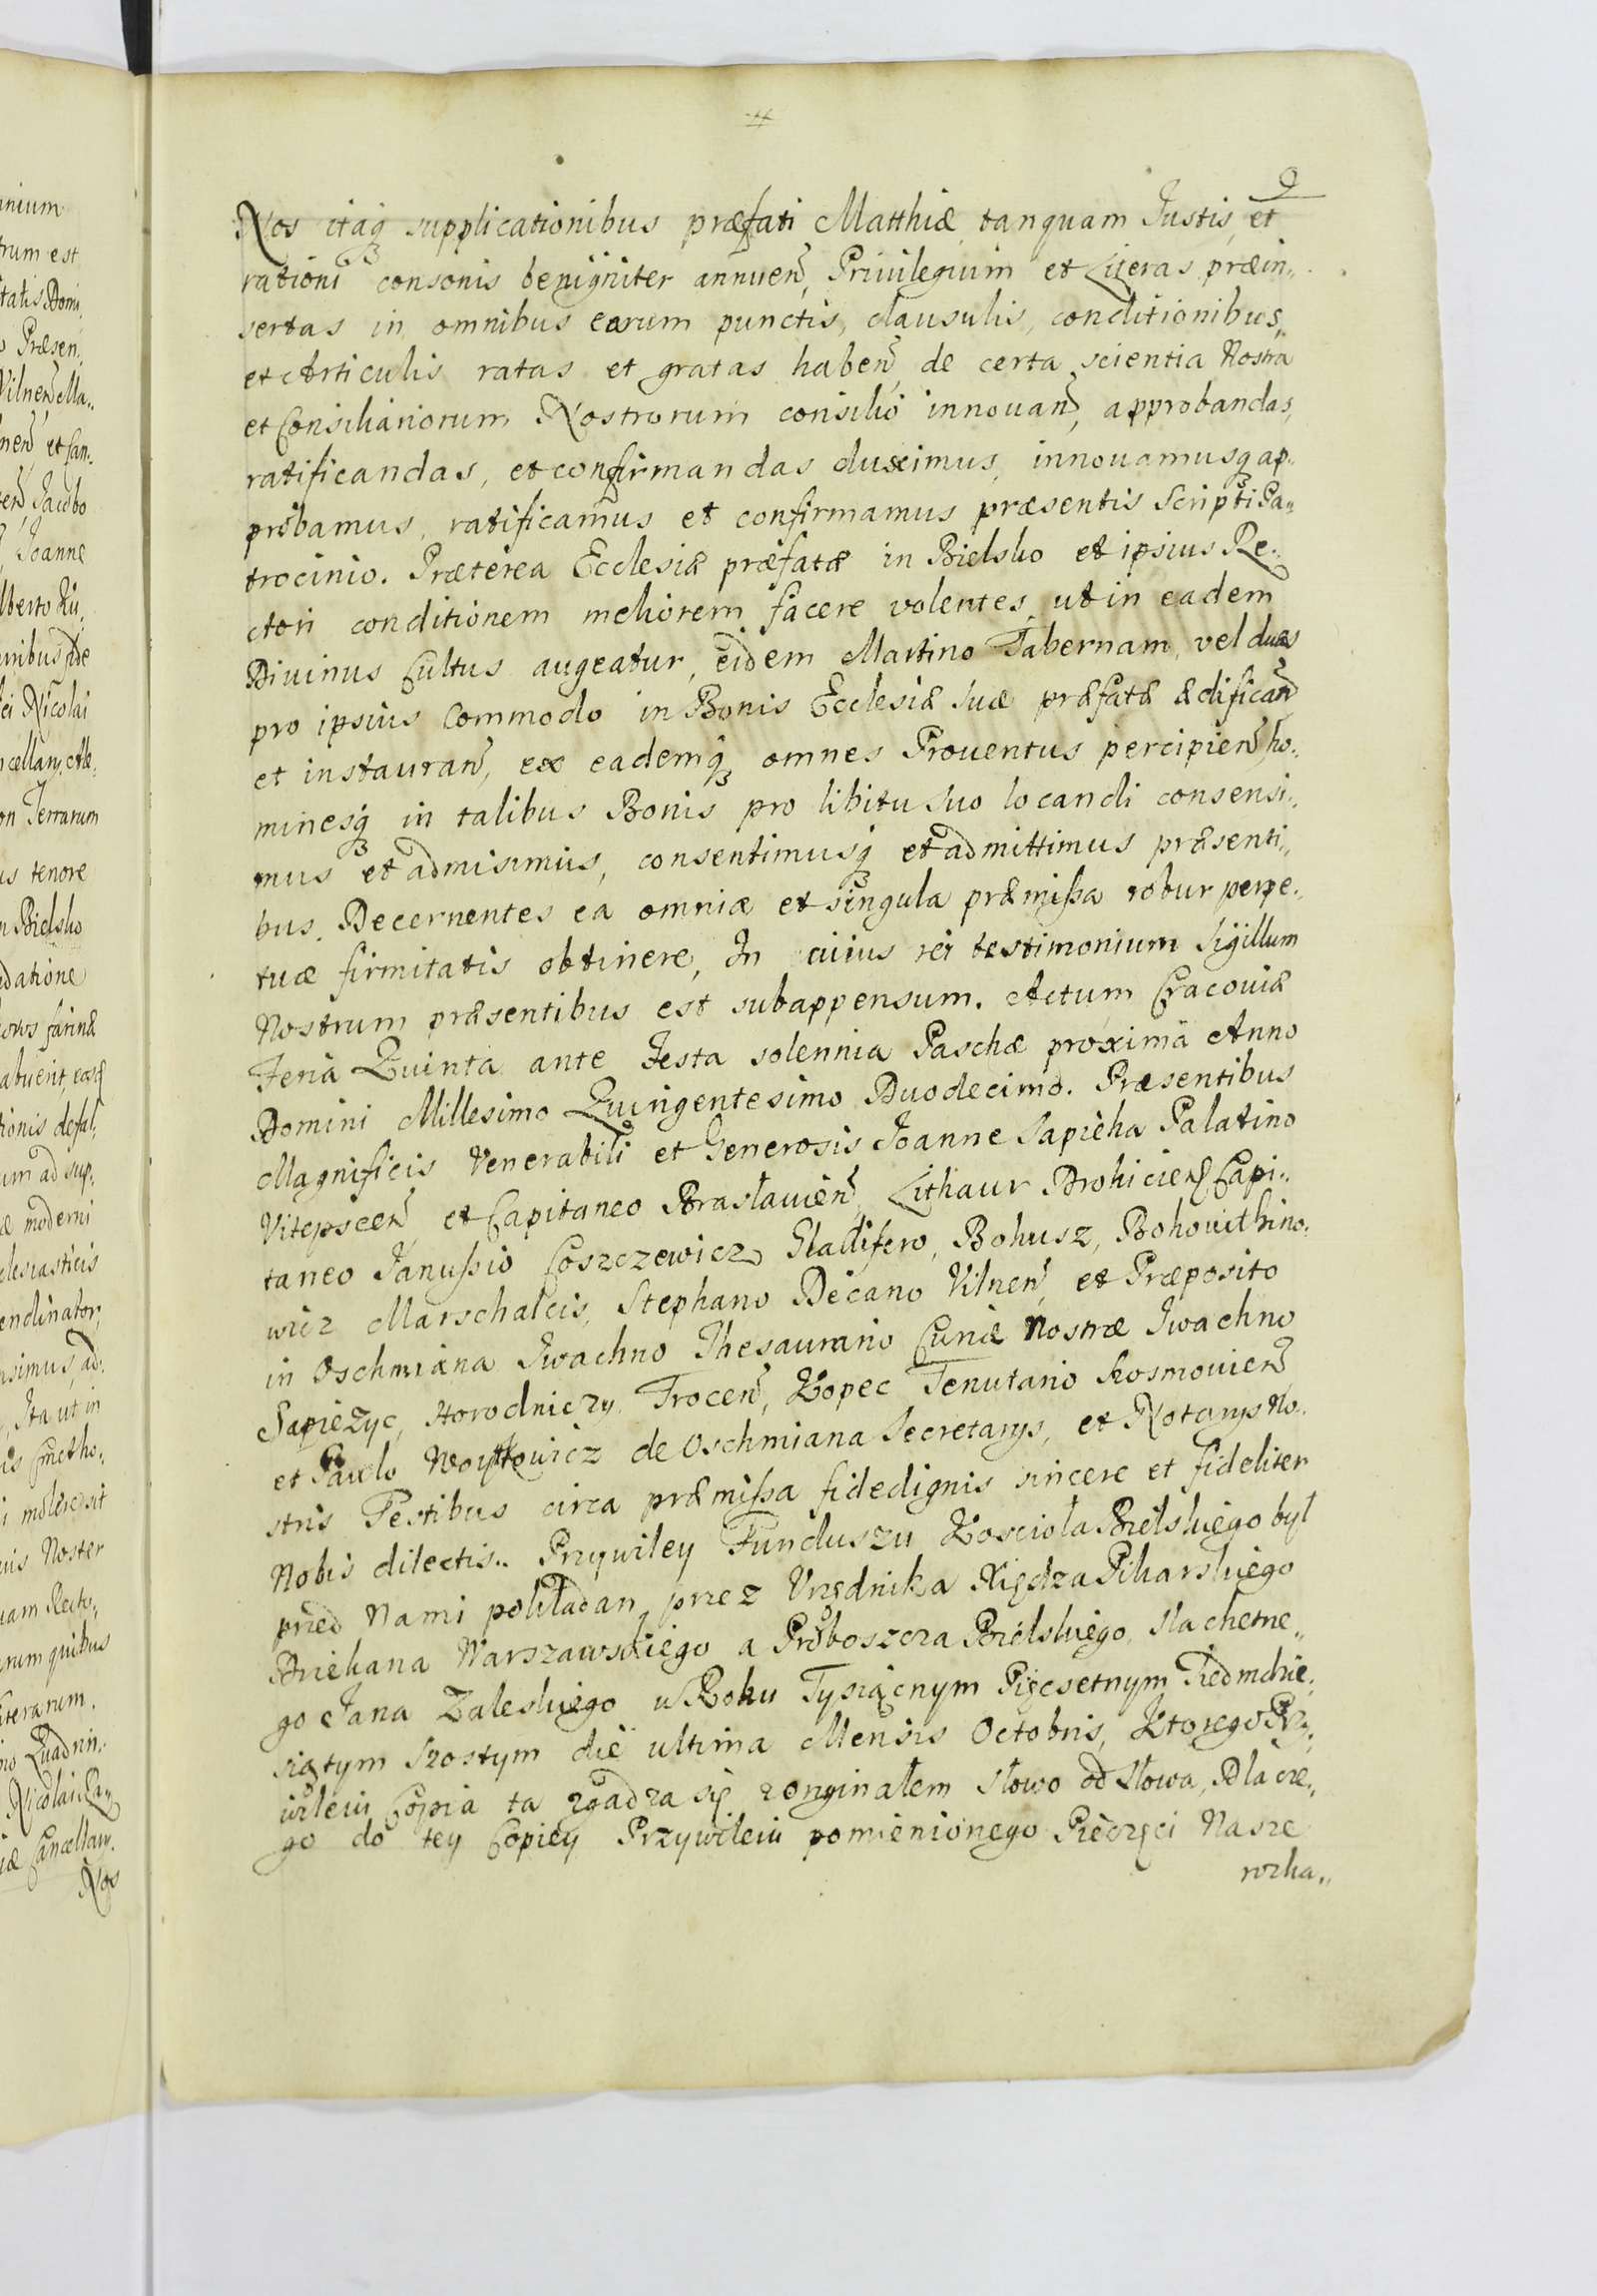 9
Nos itaq supplicationibus præfati Matthiæ tanquam Justis, et
rationi consonis benigniter annuen, Priuilegium et Literas præin„
sertas in omnibus earum punctis, clausulis, conditionibus„
et Articulis ratas et gratas haben, de certa scientia Nostra
et Consiliariorum Nostrorum consilio innouan, approbandas,
ratificandas, et confirmandas duximus, innouamusq ap„
probamus, ratificamus et confirmamus præsentis Scripti Pa„
trocinio. Præterea Ecclesiæ præfatæ in Bielsko et ipsius Re„
ctori conditionem meliorem facere volentes, ut in eadem
Diuinus Cultus augeatur, eidem Martino Tabernam, vel duas
pro ipsius Commodo in Bonis Ecclesiæ suæ præfatæ ædifican
et instauran, ex eademq omnes Prouentus percipien, ho„
minesq in talibus Bonis pro libitu suo locandi consensi„
mus et admisimus, consentimusq et admittimus præsenti„
bus. Decernentes ea omnia et singula præmissa robur perpe„
tuæ firmitatis obtinere, In cuius rei testimonium Sigillum
Nostrum præsentibus est subappensum. Actum Cracouiæ
Feria Quinta ante Festa solennia Paschæ proxima Anno
Domini Millesimo Quingentesimo Duodecimo. Præsentibus
Magnificis Venerabili et Generosis Joanne Sapieha Palatino
Vitepscen, et Capitaneo Braslauien, Lithaur Drohicien Capi„
taneo Janussio Coszczewicz Gladifero, Bohusz, Bohouithino„
wicz Marschalcis, Stephano Decano Vilnen, et Præposito
in Oschmiana Iwachno Thesaurario Curiæ Nostræ Iwachno
Sapiezyc, Horodniczy Trocen, Kopec Tenutario Kosmouien,
et Paulo Woytkowicz de Oschmiana Secretarys, et Notarys No„
stris Testibus circa præmissa fidedignis sincere et fideliter
Nobis dilectis.. Przywiley Funduszu Kosciola Bielskiego byl
pred Nami pokładan przez Vrzędnika Xiędza Pikarskiego
Driekana Warszawskiego a Proboszcza Bielskiego, Slachetne„
go Jana Zaleskiego w Roku Tysiącnym Pięcsetnym Siedmdzie„
siątym Szostym die ultima Mensis Octobris, Ktorego Przy„
wileiu Copia ta zgadza się z originałem słowo od słowa, Dla cze„
go do tey Copiey Przywileiu pomienionego Pieczęci Nasze
rozka„